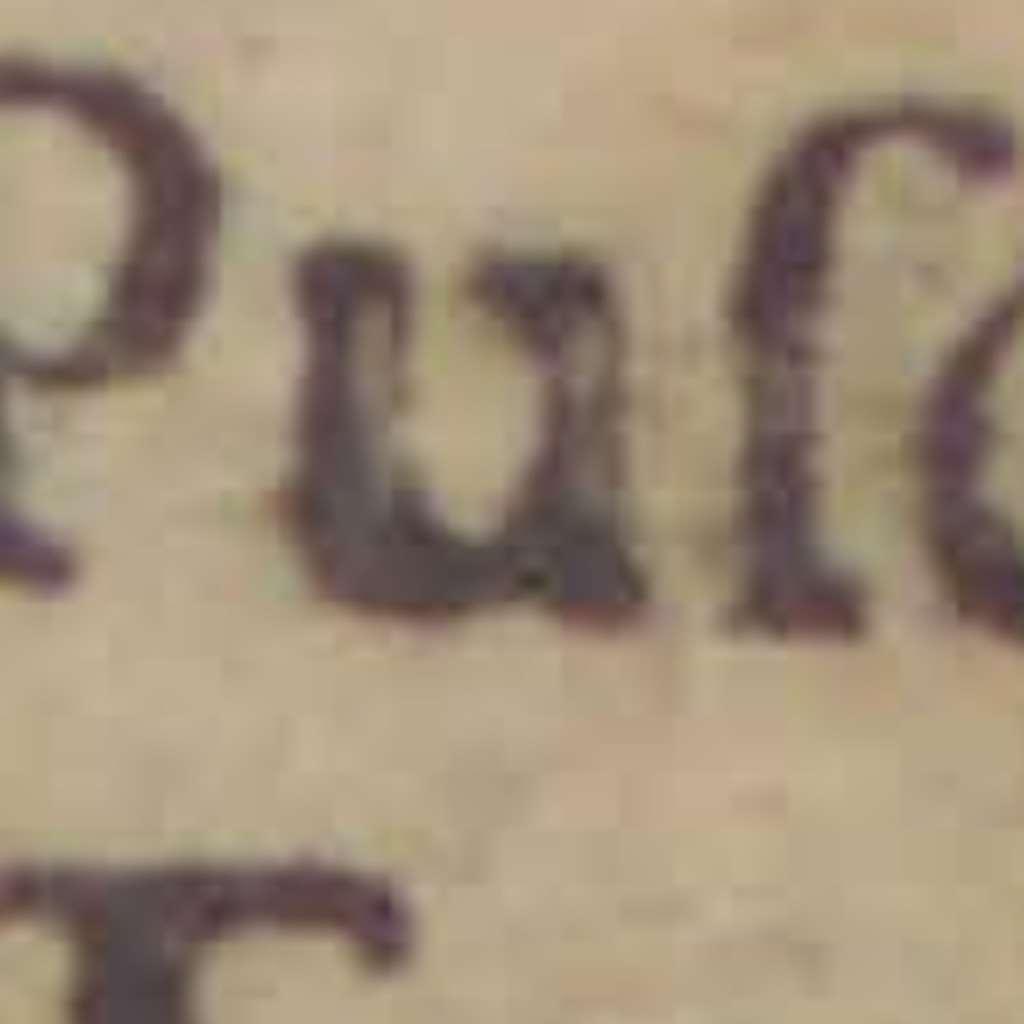 Puſ
T